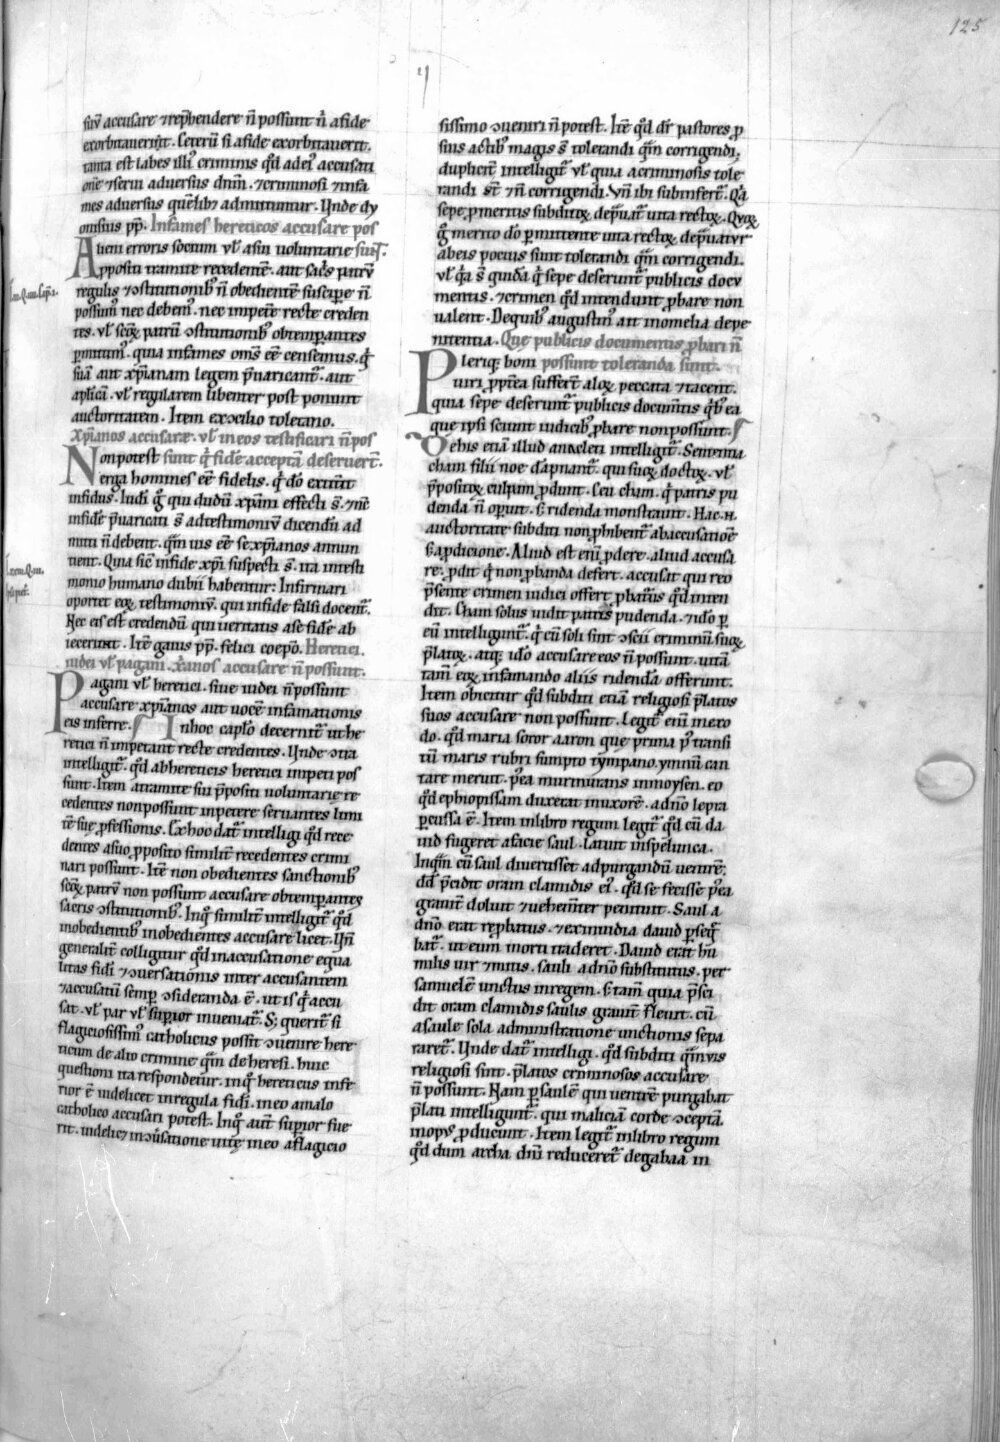 125
suū accusare ⁊ rep̄hendere n̄ possunt n̄ a fide
exorbitauerint. Ceterū si a fide exorbitauerit.
tanta est labes illi' criminis qd̄ ad ei' accusati
onē ⁊ serui aduersus dn̄m. ⁊ criminosi ⁊ infa
mes aduersus quēlib; admittuntur. Vnde dy
onisius pp̄. Infames hereticos accusare pos
Alieni erroris socium ut̄ a sui uoluntarie sunt.
ppositi tramite recedentē. aut sac̄s patrū
regulis ⁊ ↄstitutionib; n̄ obedientē suscipe n̄
possum' nec debem'. nec impetē recte creden
tes. ut̄ scōꝝ patrū ↄstitutionib; obtemperantes
pmittim'. quia infames om̄s eē censemus. q̇
suā aut xp̄ianam legem p̄uaricant͛. aut
aplicā. ut̄ regularem libenter post ponunt
auctoritatem. Item ex ↄcilio toletano.
xp̄ianos accusare. ut̄ in eos testificari n̄ pos
Non potest sunt q̇ fidē acceptā deseruert̄.
erga homines eē fidelis. q̇ dō extitit
infidus. Iudi ḡ qui dudū xp̄iani effecti s̄. ⁊ nc̄
infidē p̄uaricati s̄ ad testimoniū dicendū ad
mitti n̄ debent. qm̄uis eē se xp̄ianos annun
tient. Quia sic̄ in fide xp̄i suspecti s̄. ita in testi
monio humano dubii habentur: Infirmari
oportet eoꝝ testimoniū. qui in fide falsi docent͛.
Nec eis est credendū qui ueritatis a se fidē ab
iecerunt. Itē gaius pp̄. felici coepō. Heretici.
iudei ut̄ pagani. xp̄ianos accusare n̄ possunt.
Pagani ut̄ heretici. siue iudei n̄ possunt
accusare xp̄ianos aut uocē infamationis
eis inferre. In hoc caplō decernit͛ ut he
retici n̄ impetant recte credentes. Vnde ↄtra
intelligit͛. qd̄ ab hereticis heretici impeti pos
sunt. Item a tramite sui p̄positi uoluntarie re
cedentes non possunt inpetere seruantes limi
tē sue pfessionis. Ex hoc dat͛ intelligi qd̄ rece
dentes a suo pposito similit̄ recedentes crimi
nari possunt. Itē non obedientes sanctionib;
scōꝝ patrū non possunt accusare obtemperantes
sacris ↄstitutionib;. Inq̄ similit̄ intelligit͛ qd̄
inobedientib; inobedientes accusare licet. Hinc
generalit̄ colligitur qd̄ in accusatione equa
litas fidi ⁊ ↄuersationis inter accusantem
⁊ accusatū semp̄ ↄsideranda ē. ut is q̇ accu
sat. ut̄ par ut̄ supior inueniat͛. S; querit͛ si
flagiciosissim' catholicus possit ↄuenire here
ticum de alio crimine qm̄ de heresi. huic
questioni ita respondetur. in q̄ hereticus infe
rior ē uidelicet in regula fidi. in eo a malo
catholico accusari potest. Inq̄ aut̄ supior fue
rit. uidelic; in ↄūsatione uitę. in eo a flagicio
sissimo ↄueniri n̄ potest. Itē qd̄ dr̄ pastores p
suis actib; magis s̄ tolerandi qm̄ corrigendi.
duplicit̄ intelligit͛ ut̄ quia a criminosis tole
randi st̄ ⁊ n̄ corrigendi. Vn̄ ibi subinfert͛. Qa
sepe p meritis subditoꝝ dep̄uat͛ uita rectoꝝ. Quoꝝ
ḡ merito dō pmittente uita rectoꝝ dep̄uatur
ab eis pocius sunt tolerandi qm̄ corrigendi.
ut̄ qa s̄ quidā q̇ sepe deserunt͛ publicis docu
mentis. ⁊ crimen qd̄ intendunt pbare non
ualent. De quib; augustin' ait in omelia de pe
nitentia. Que publicis documentis pbari n̄
Pleriq; boni possunt toleranda sunt.
uiri pp̄tea suffert͛ alioꝝ peccata ⁊ tacent.
quia sepe deserunt͛ publicis documtīs qb; ea
que ipsi sciunt iudicib; pbare non possunt.
De his etiā illud anacleti intelligit͛. Sententia
cham filii noe dāpnant͛. qui suoꝝ doctoꝝ. ut̄
p̄positoꝝ culpam pdunt. Ceu cham. q̇ patris pu
denda n̄ opuit. s; ridenda monstrauit. Hac .n.
auctoritate subditi non phibent͛ ab accusatiōe
s; a pdicione. Aliud est eni pdere. aliud accusa
re. pdit q̇ non pbanda defert. accusat qui reo
p̄sente crimen iudici offert pbatur' qd̄ inten
dit. Cham solus uidit patris pudenda. ⁊ idō p
eū intelligunt͛. q̇ cū soli sint ↄscii criminū suoꝝ
p̄latoꝝ. atq; idō accusare eos n̄ possunt. uitā
tam̄ eoꝝ infamando aliis ridendā offerunt.
Item obicitur qd̄ subditi etiā religiosi p̄latos
suos accusare non possunt. Legit͛ eni in exo
do. qd̄ maria soror aaron que prima p' transi
tū maris rubri sumpto tympano. ymnū can
tare meruit. p'ea murmurans in moysen. eo
qd̄ ephiopissam duxerat in uxorē. a dn̄o lepra
pcussa ē. Item in libro regum legit͛ qd̄ cū da
uid fugeret a facie saul. latuit in spelunca.
In quā cū saul diuertisset ad purgandū uentrē:
dd̄ p̄cidit oram clamidis ei'. qd̄ se fecisse p'ea
grauit̄ doluit ⁊ uehemt̄er penituit. Saul a
dn̄o erat rep̄batus. ⁊ ex inuidia dauid p̄seq̄
bat͛. ut eum morti traderet. Dauid erat hu
milis uir ⁊ mitis. sauli a dn̄o substitutus. per
samuelē unctus in regem. s; tam̄ quia p̄sci
dit oram clamidis saulis grauit̄ fleuit. cū
a saule sola administratione unctionis sepa
raret͛. Vnde dat͛ intelligi. qd̄ subditi qm̄uis
religiosi sint. p̄latos criminosos accusare
n̄ possunt. Nam p saulē qui uentrē purgabat
p̄lati intelligunt͛. qui maliciā corde ↄceptā.
in op' pducunt. Item legit͛ in libro regum
qd̄ dum archa dn̄i reduceret͛ de gabaa in